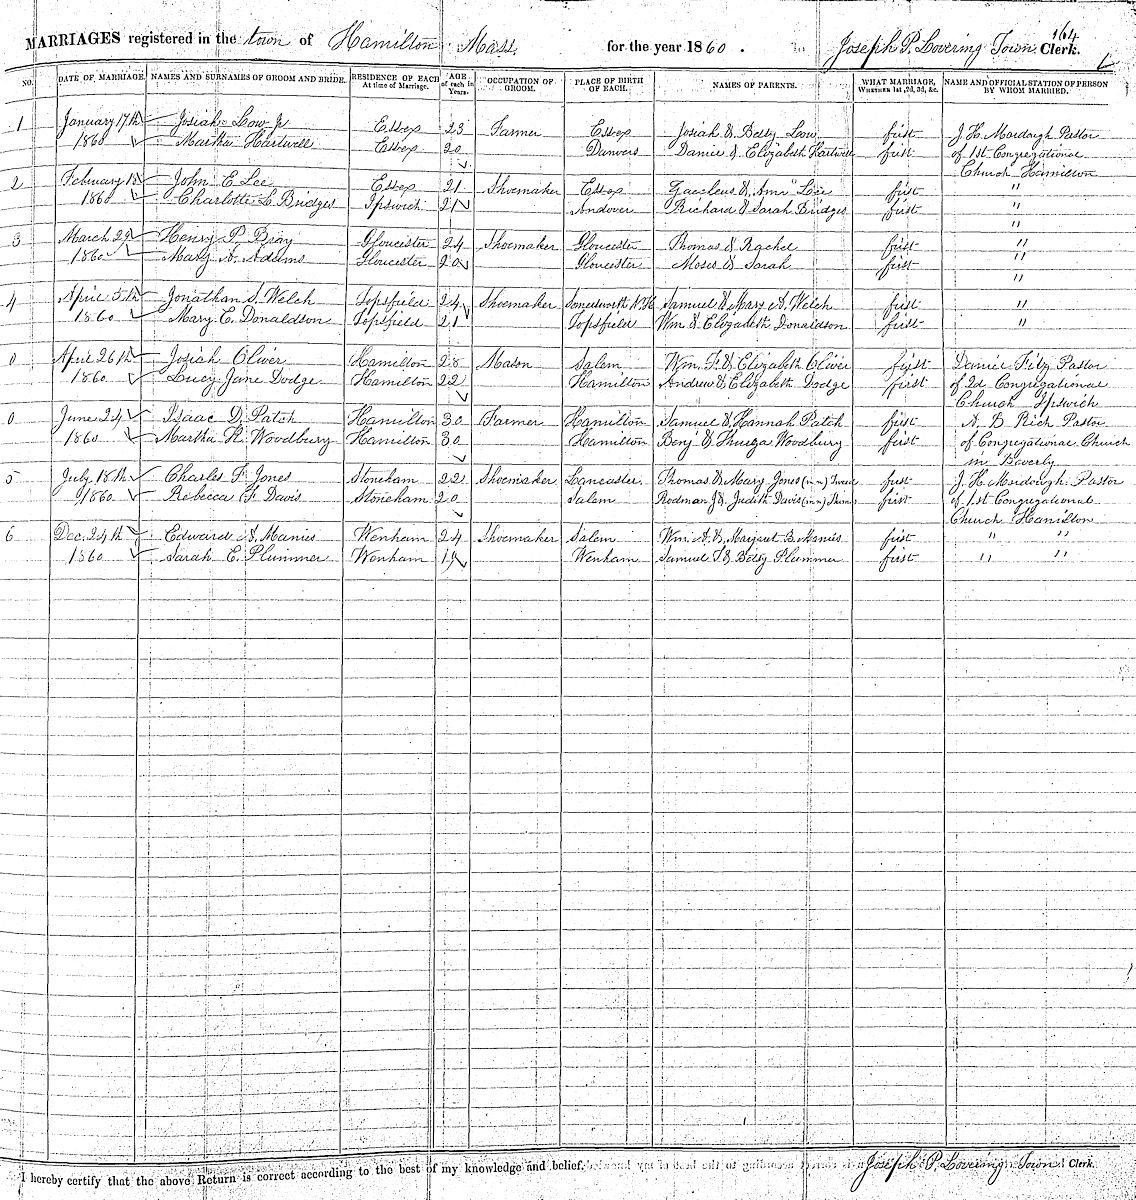 164
MARRIAGES registered in the town of Hamilton Mass. for the year 1860. Joseph P. Lovering Town Clerk.
NO. DATE OF MARRIAGE. NAMES AND SURNAMES OF GROOM AND BRIDE. RESIDENCE OF EACH At time of Marriage. AGE of each in Years. OCCUPATION OF GROOM. PLACE OF BIRTH OF EACH. NAMES OF PARENTS. WHAT MARRIAGE, WHETHER 1st, 2d, 3d, &c. NAME AND OFFICIAL STATION OF PERSON BY WHOM MARRIED.
1 January 17th Josiah Low Jr Essex 23 Farmer Essex Josiah & Betsy Low first J. H. Mordough Pastor
1860 Martha Hartwell Essex 20 Danvers Daniel & Elizabeth Hartwell first of 1st Congregational
Church Hamilton
2 February John E Lee Essex 21 Shoemaker Essex & Lee first "
1860 Charlotte L. Bridges Ipswich 21 Andover Richard & Sarah Bridges first "
"
3 March 29 Henry P. Bray Gloucester 24 Shoemaker Gloucester Thomas & Rachel first "
1860 Mary A. Adams Gloucester 20 Gloucester Moses & Sarah first "
"
4 April 5th Jonathan S. Welch Topsfield 24 Shoemaker Somersworth N.H. Samuel & Mary A. Welch first "
1860 Mary E. Donaldson Topsfield 21 Topsfield Wm & Elizabeth Donaldson first "
0 April 26th Josiah Oliver Hamilton 28 Mason Salem Wm. F. & Elizabeth Oliver first Daniel Fitz Pastor
1860 Lucy Jane Dodge Hamilton 22 Hamilton Andrew & Elizabeth Dodge first of 2d Congregational
Church Ipswich
0 June 24 Isaac D. Patch Hamilton 30 Farmer Hamilton Samuel & Hannah Patch first A. B Rich Pastor
1860 Martha R. Woodbury Hamilton 30 Hamilton Benj & Woodbury first of Congregational Church
in Beverly
5 July 18th Charles F. Jones Stoneham 22 Shoemaker Lancaster Thomas & Mary Jones first J. H. Mordough Pastor
1860 Rebecca F. Davis Stoneham 20 Salem Rodman J. & Judith Davis first of 1st Congregational
Church Hamilton
6 Dec. 24th Edward A. Manies Wenham 24 Shoemaker Salem Wm. A. & Margaret B. Manies first " "
1860 Sarah E. Plummer Wenham 19 Wenham Samuel T. & Betsy Plummer first " "
I hereby certify that the above Return is correct according to the best of my knowledge and belief. Joseph P. Lovering Town Clerk.